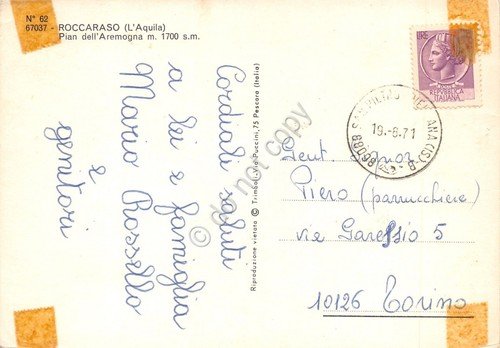 N° 62
67037 - ROCCARASO (L'Aquila)
Pian dell'Aremogna m. 1700 s.m.
Cordiali saluti
a lei e famiglia
Mario Rossello
e
genitori
Riproduzione vietata © Trimboli, Via Puccini, 75 Pescara (Italia)
19.-8.71
POSTE
REPUBBLICA
ITALIANA
Gent. Signor
Piero (parrucchiere)
via Garessio 5
10126 Torino
do not copy